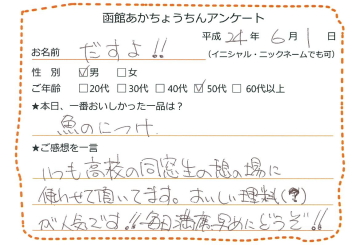 函館あかちょうちんアンケート
平成 24 年 6 月 1 日
お名前 だすよ!!
(イニシャル・ニックネームでも可)
性 別 ☑男 □女
ご年齢 □20代 □30代 □40代 ☑50代 □60代以上
★本日、一番おいしかった一品は?
魚のにつけ
★ご感想を一言
いつも高校の同窓生の憩の場に
使わせて頂いてます。おいしい理料(?)
が人気です!!毎日満席早めにどうぞ!!